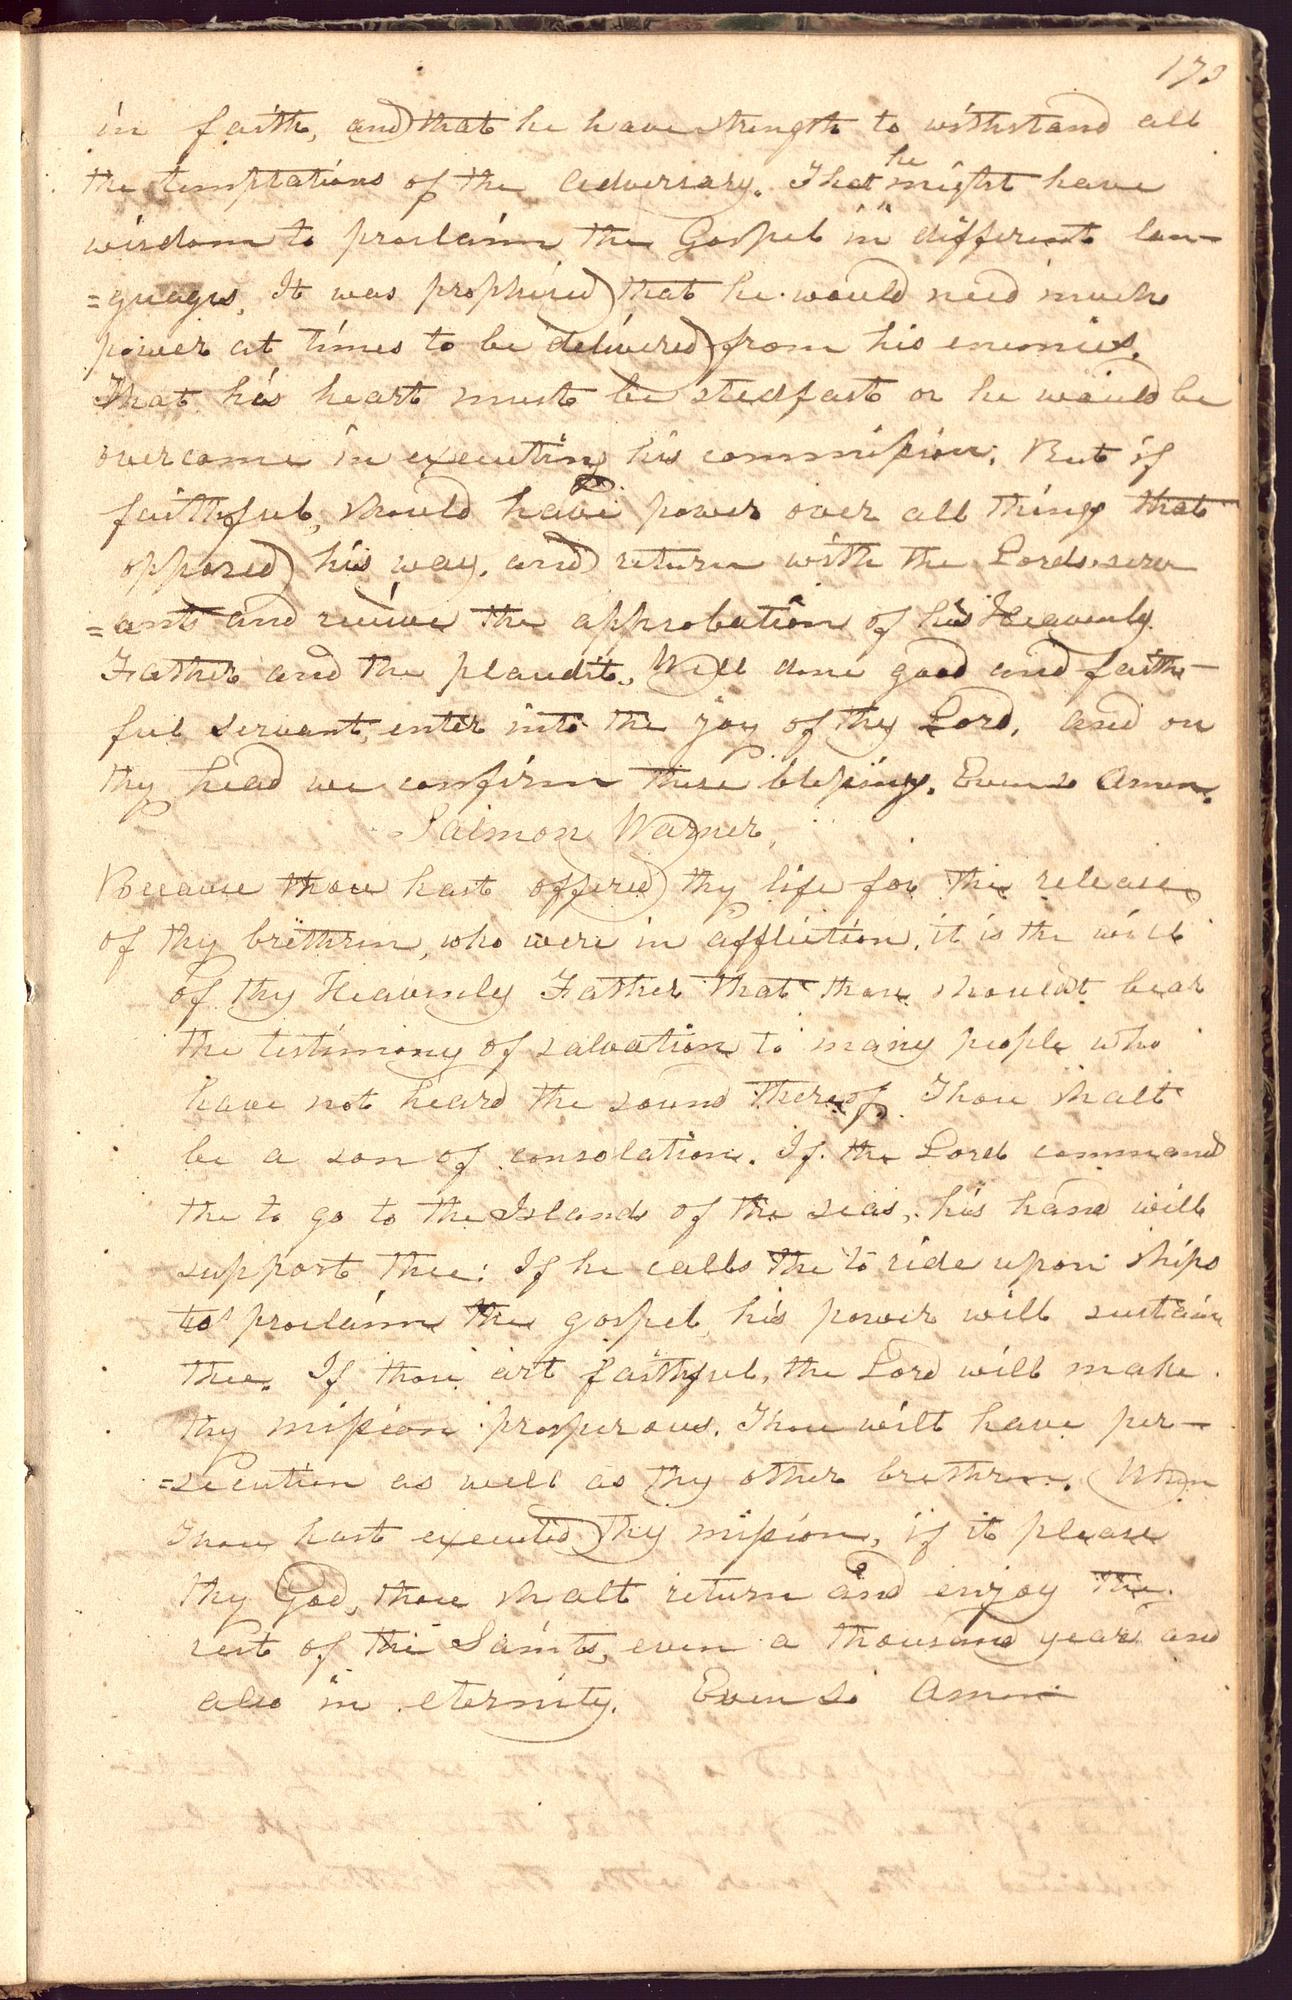 173
in faith, and that he have strength to withstand all
the temptations of the adversary. That he might have
wisdom to proclaim the Gospel in different lan-
=guages, It was prophesied that he would need much
power at times to be delivered from his enemies.
That his heart must be stedfast or he would be
overcome in executing his commission. But if
faithful, should have power over all things that
opposed his way, and return with the Lords serv
=ants and receive the approbation of his Heavenly
Father and the plaudit, Well done good and faith-
ful servant, enter into the joy of thy Lord, and on
thy head we confirm these blessings. Even so Amen.
Salmon Warner,
Because thou hast offered thy life for the release
of thy brethren, who were in affliction, it is the will
of thy Heavenly Father that thou shouldt bear
the testimony of salvation to many people who
have not heard the sound thereof. Thou shalt
be a son of consolation. If the Lord command
the to go to the Islands of the seas, his hand will
support thee: If he calls the to ride upon ships
to proclaim the gospel, his power will sustain
thee. If thou art faithful, the Lord will make
thy mission prosperous. Thou wilt have per-
=secution as well as thy other brethren. When
Thou hast executed thy mission, if it please
thy God, thou shalt return and enjoy the
rest of the Saints, even a thousand years and
also in eternity. Even so Amen